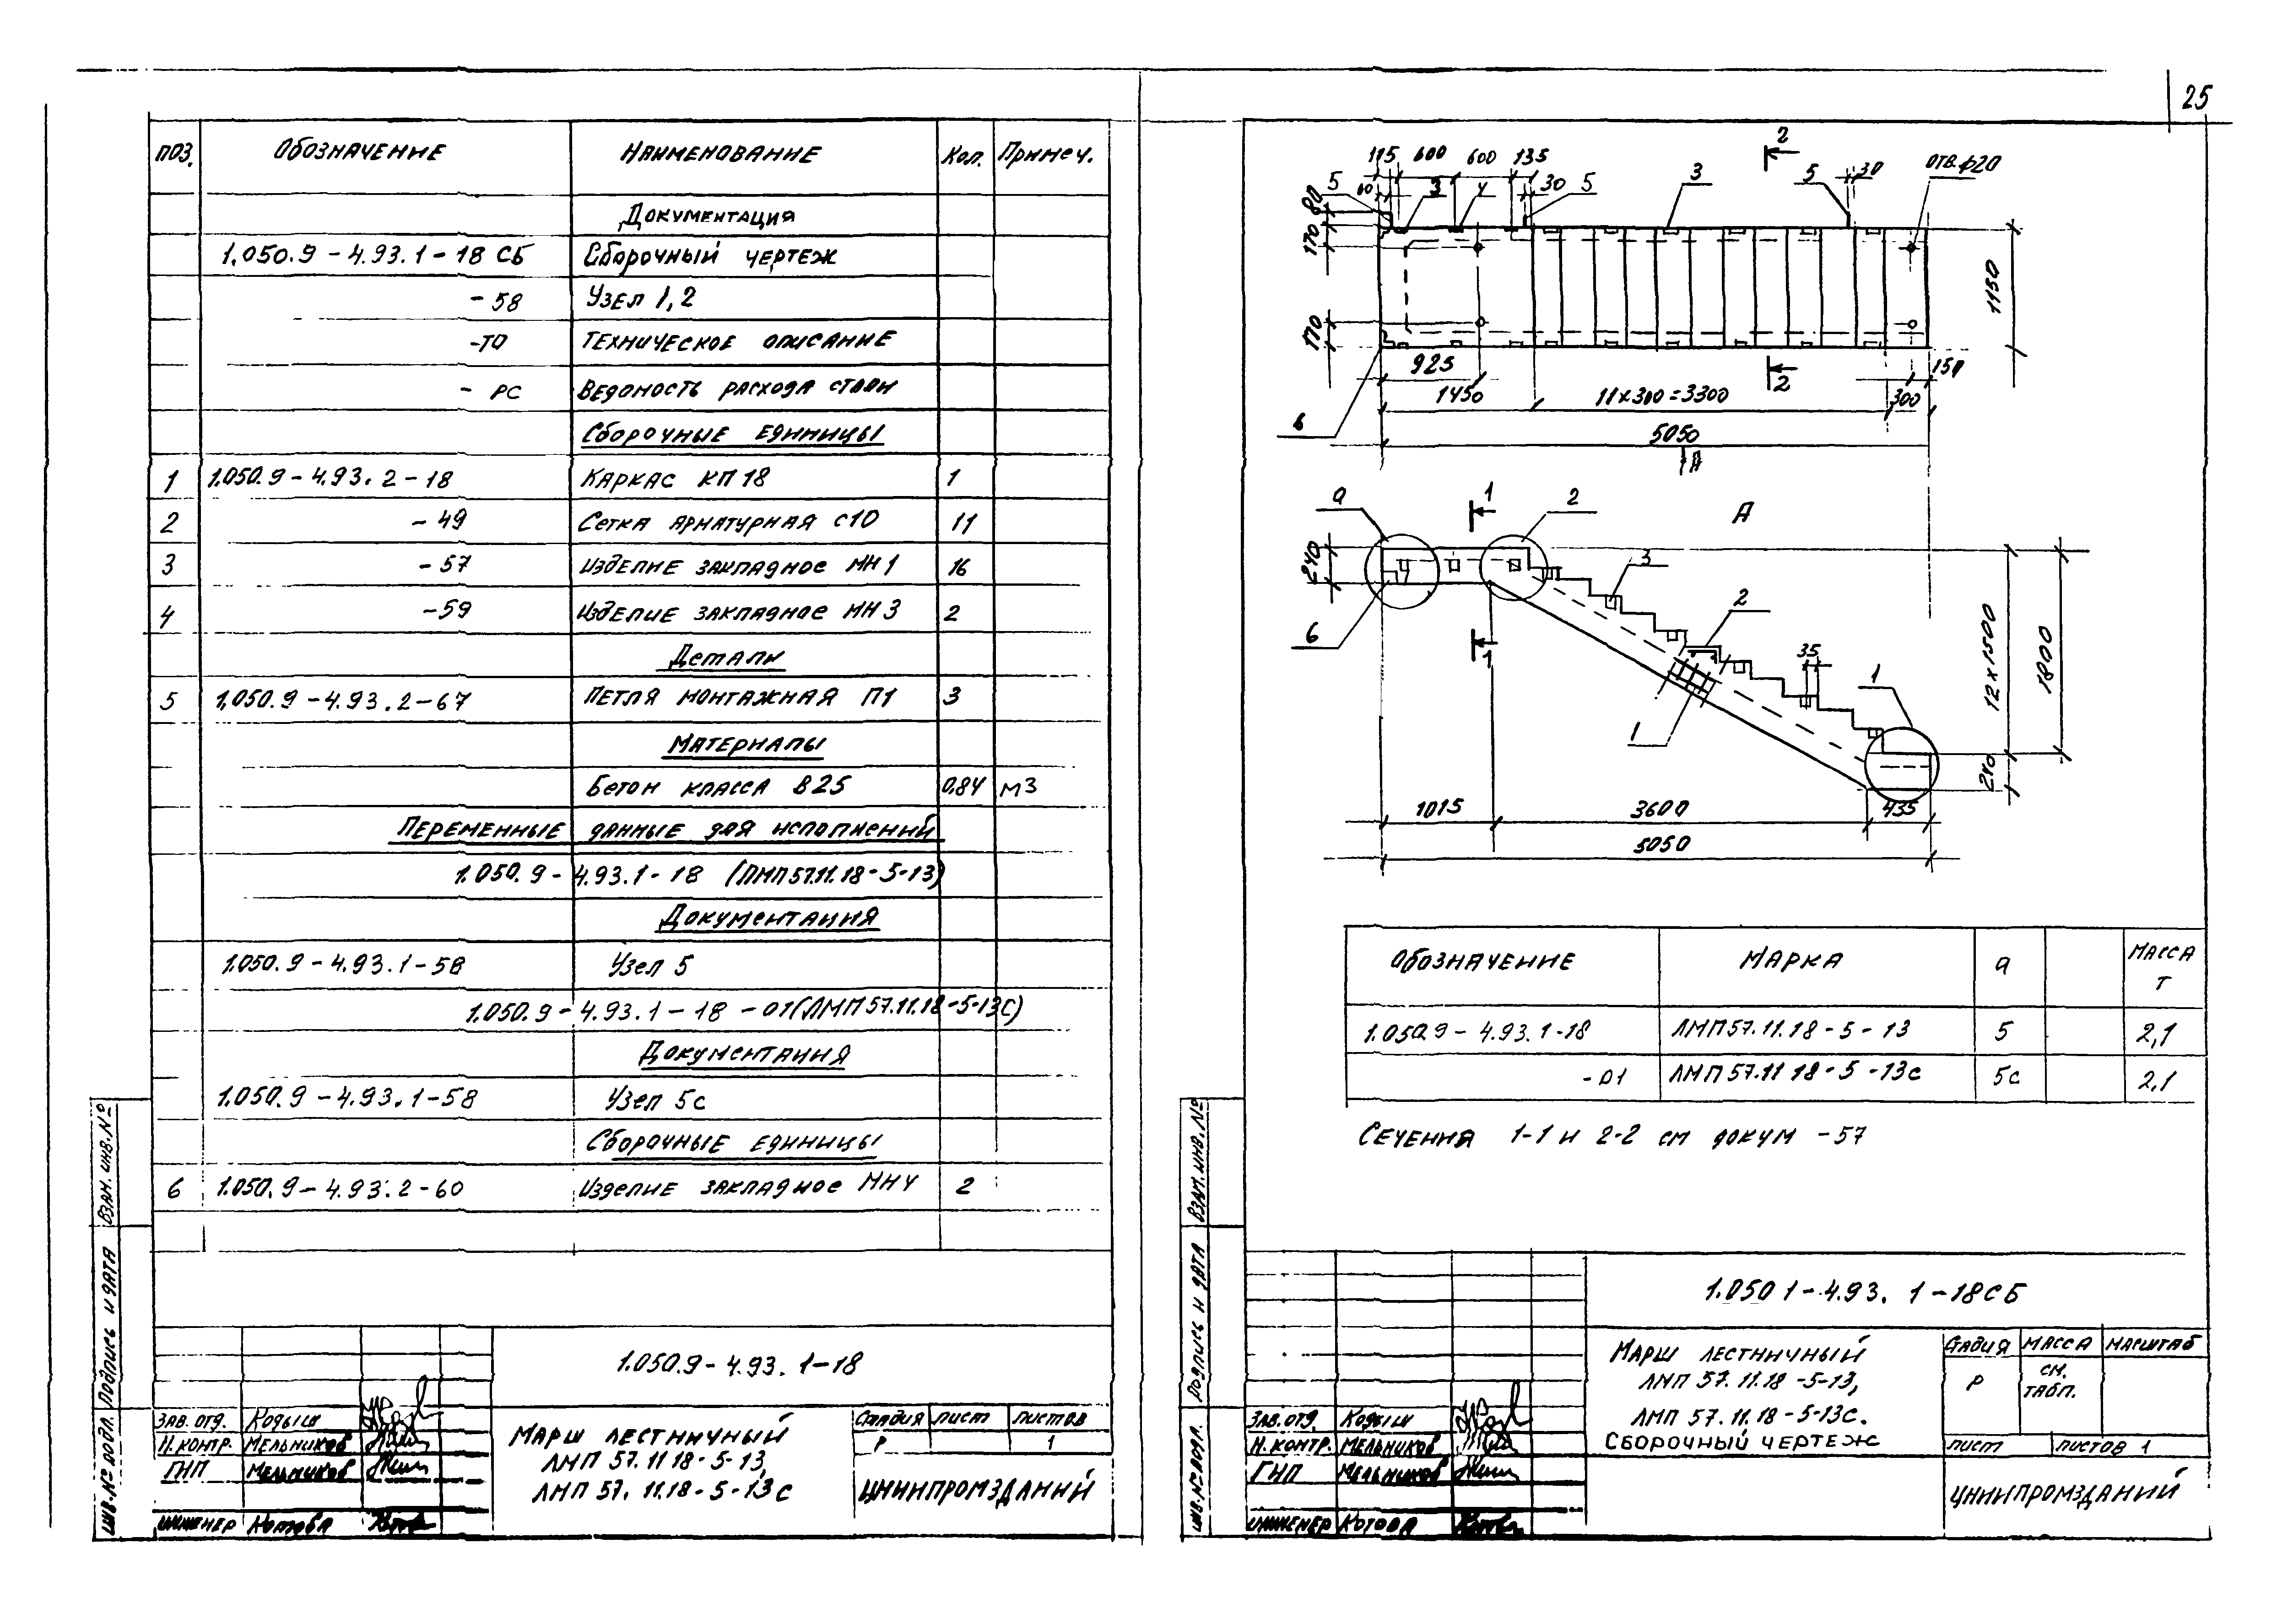 25
ПОЗ. Обозначение Наименование Кол. Примеч.
Документация
1.050.9-4.93.1-18 СБ Сборочный чертеж
-58 Узел 1,2
-ТО Техническое описание
- РС Ведомость расхода стали
Сборочные единицы
1 1.050.9-4.93.2-18 Каркас КП 18 1
2 -49 Сетка арматурная С10 11
3 -57 Изделие закладное МН1 16
4 -59 Изделие закладное МН3 2
Детали
5 1.050.9-4.93.2-67 Петля монтажная П1 3
Материалы
Бетон класса В25 0,84 м3
Переменные данные для исполнений
1.050.9-4.93.1-18 (ЛМП57.11.18-5-13)
Документация
1.050.9-4.93.1-58 Узел 5
1.050.9-4.93.1-18-01(ЛМП57.11.18-5-13С)
Документация
1.050.9-4.93.1-58 Узел 5с
Сборочные единицы
6 1.050.9-4.93.2-60 Изделие закладное МН4 2
Взам. инв. №
Подпись и дата
Инв. № подл.
1.050.9-4.93.1-18
Зав. отд. Кодыш
Н.контр. Мельников
ГИП Мельников
Инженер Котова
Марш лестничный
ЛМП 57.11 18-5-13,
ЛМП 57.11.18-5-13с
Стадия Лист Листов
Р 1
ЦНИИПРОМЗДАНИЙ
2
115 600 600 135 3 5 30 отв.ф20
5 60 3 4 30 5
80
170
170
1150
925 2 150
1450 11х300=3300 300
6
5050
А
а 1 2 А
240
3
6 1
2
35
1
1
12х1500
1800
240
1015 3600 435
5050
Обозначение Марка а Масса т
1.050.9-4.93.1-18 ЛМП57.11.18-5-13 5 2,1
-01 ЛМП57.11 18-5-13с 5с 2,1
Сечения 1-1 и 2-2 см докум -57
Взам. инв. №
Подпись и дата
Инв. № подл.
1.050 1-4.93. 1-18СБ
Зав. отд. Кодыш
Н.контр. Мельников
ГИП Мельников
Инженер Котова
Марш лестничный
ЛМП 57.11.18-5-13,
ЛМП 57.11.18-5-13с.
Сборочный чертеж
Стадия Масса Масштаб
Р см. табл.
Лист Листов 1
ЦНИИПРОМЗДАНИЙ